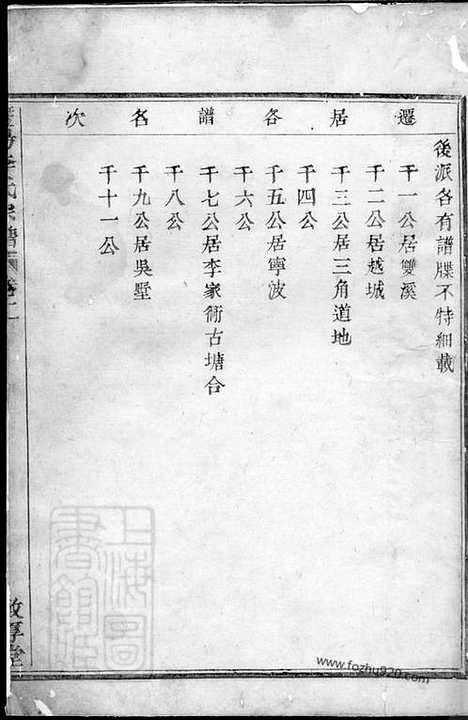 後派各有譜牒不特細載
遷居各譜名次
千一公居雙溪
千二公居越城
千三公居三角道地
千四公
千五公居寧波
千六公
千七公居李家衖古塘合
千八公
千九公居吳墅
千十一公
氏宗譜
卷二
敦厚堂
上海圖書館
www.fozhu920.com